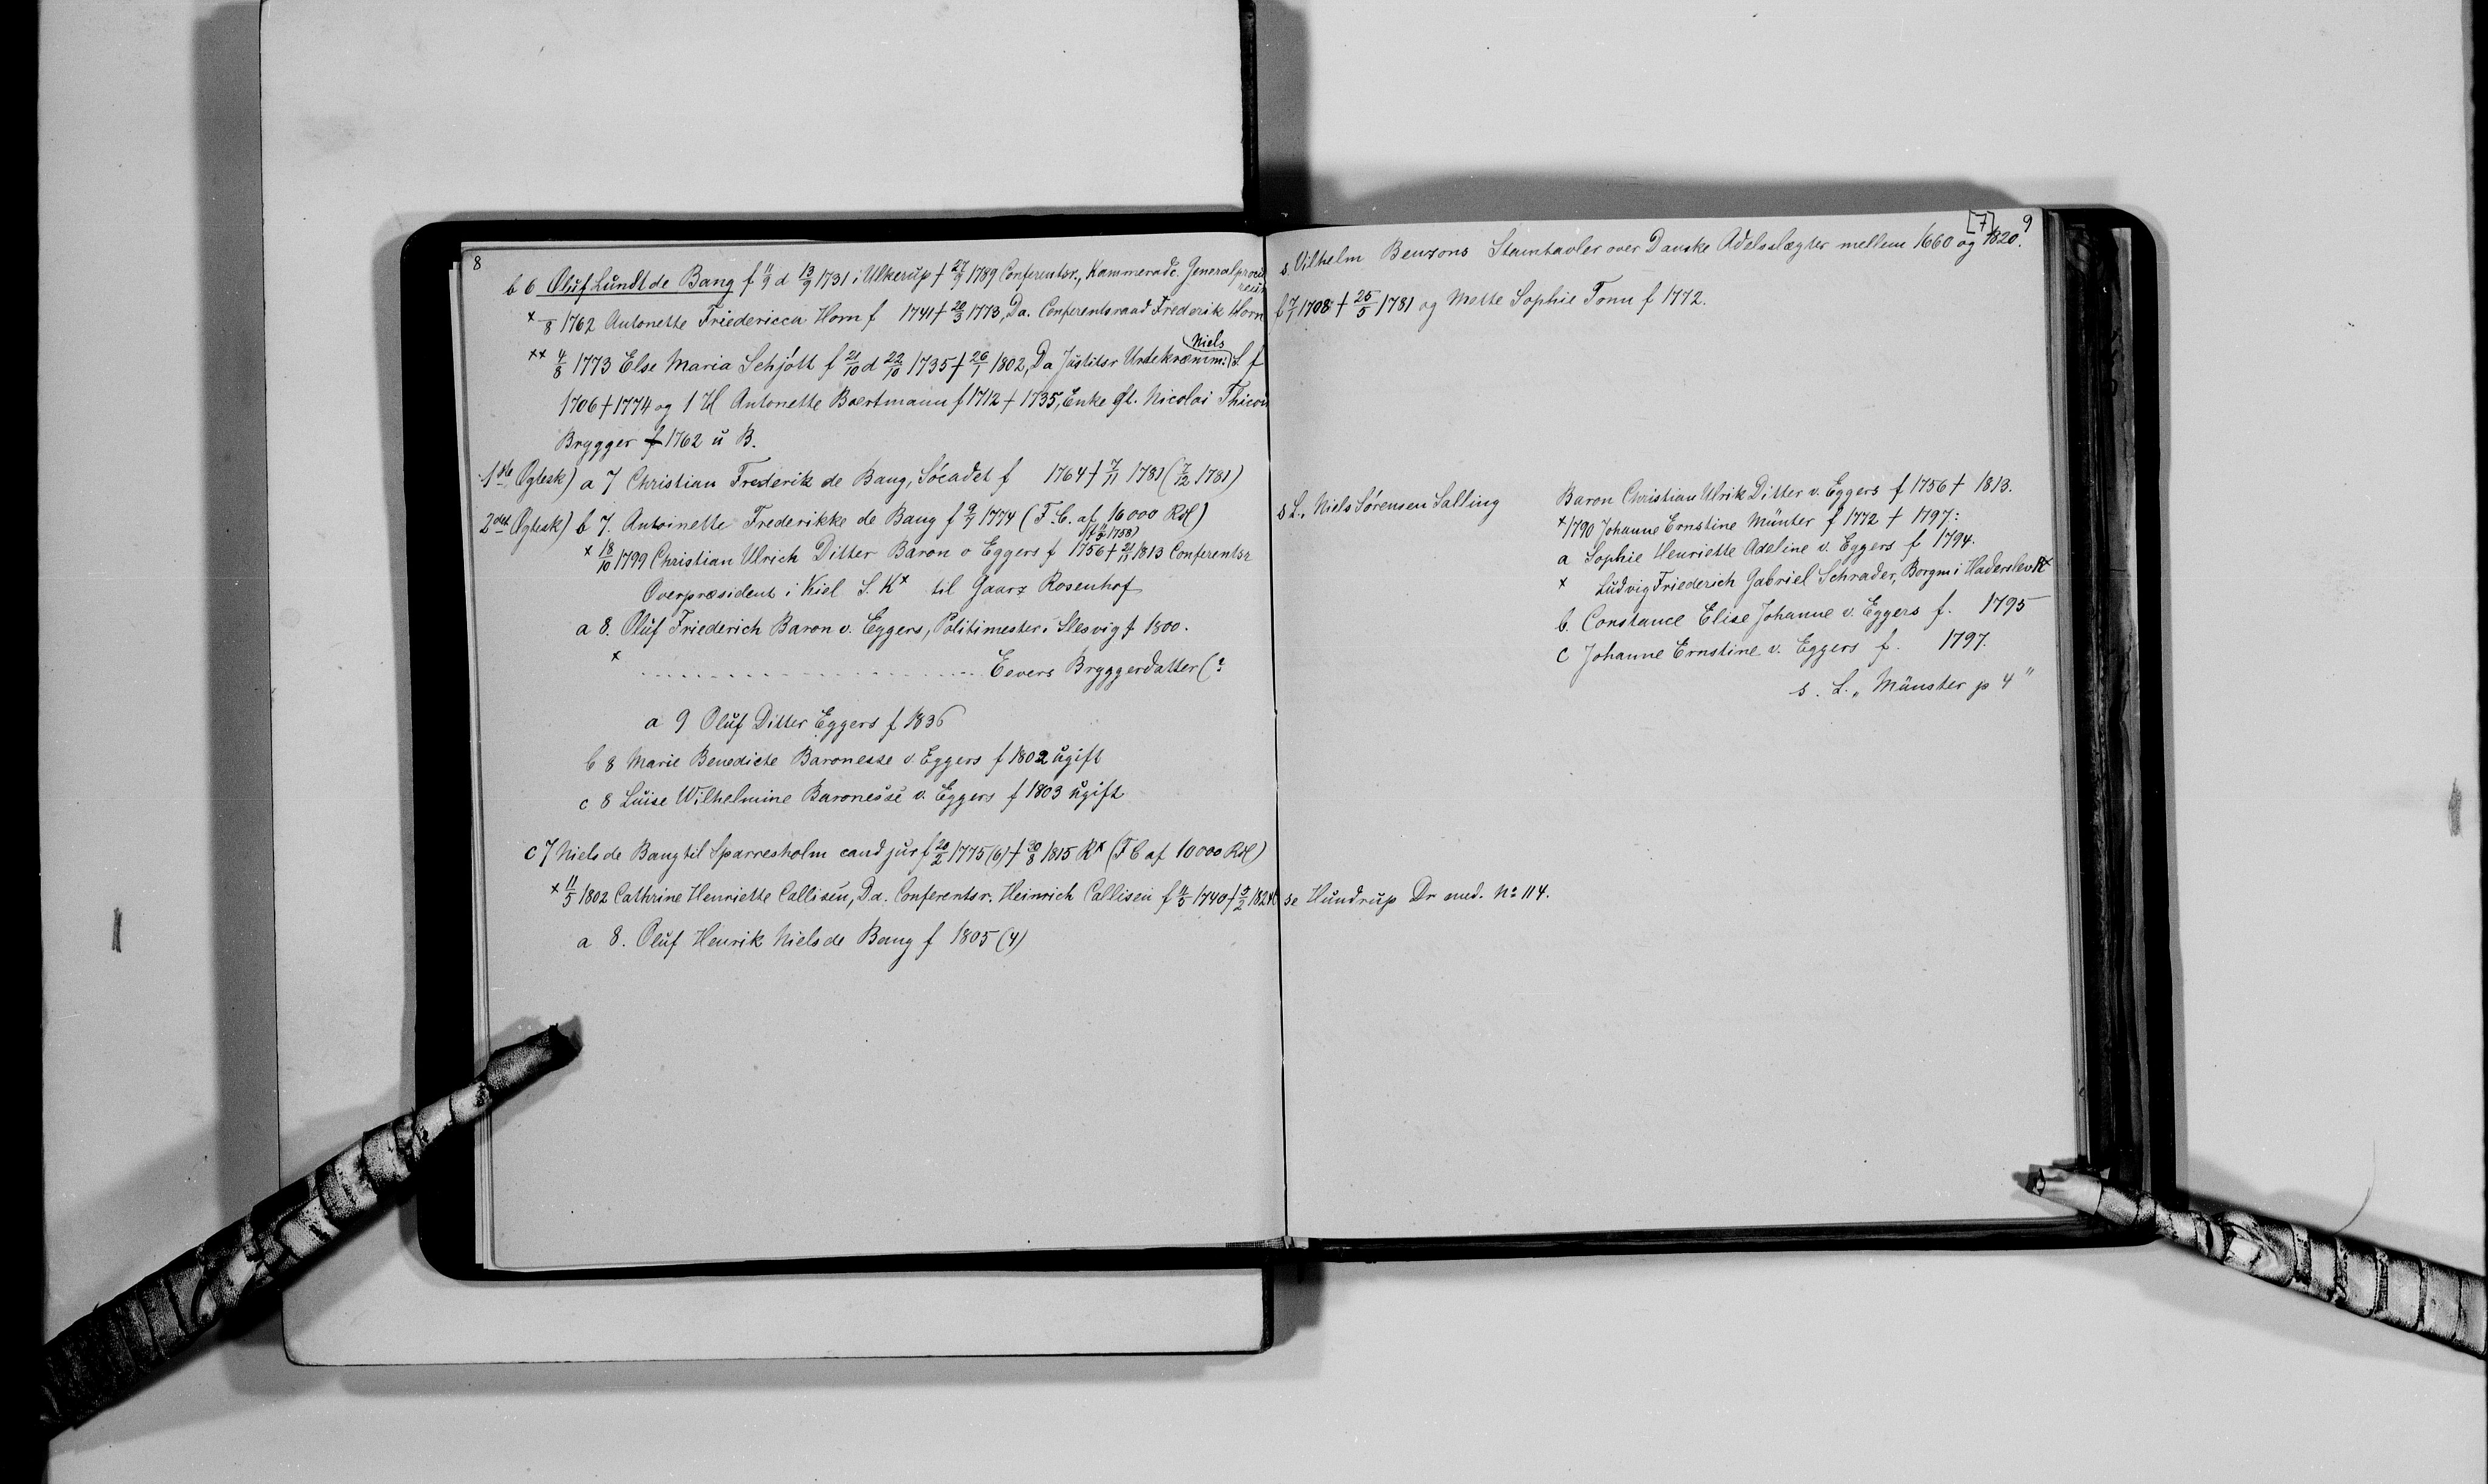 8
b 6 Oluf Lundt de Bang f 11/9 d 13/9 1731 i Ulkerup † 27/9 1789 Conferentsr., Kammeradv. Generalprocureur
× /8 1762 Antonette Friedericca Horn f 1741 † 20/3 1773, Da. Conferentsraad Frederik Horn
×× 4/8 1773 Else Maria Schjøtt f 21/10 d 22/10 1735 † 26/1 1802, Da Justitsr Urtekræmm: Niels S. f
1706 † 1774 og 1 H Antonette Boertmann f 1712 † 1735, Enke gl. Nicolai
Brygger f 1762 u B.
1ste Ægtesk) a 7 Christian Frederik de Bang, Söcadet f 1764 † 7/11 1781 (7/12 1781)
2det Ægtesk) b 7. Antoinette Frederikke de Bang f 9/7 1774 (F. C. af 16000 Rdl)
× 18/10 1799 Christian Ulrich Ditter Baron v Eggers f 1756 † 1813 Conferentsr
Overpræsident i Kiel S. K× til Gaarz Rosenhof
a 8. Oluf Friederich Baron v. Eggers, Politimester i Slesvig f 1800.
× .................... Eevers Bryggerdatter (?
a 9 Oluf Ditter Eggers f 1836
b 8 Marie Benedicte Baronesse v. Eggers f 1802 ugift
c 8 Luise Wilhelmine Baronesse v. Eggers f 1803 ugift
c 7 Niels de Bang til Sparresholm cand jur f 20/2 1775 (6) † 30/8 1815 R× (F C af 10000 Rdl)
× 11/5 1802 Cathrine Henriette Callisen, Da. Conferentsr. Heinrich Callisen f 11/5 1740 † 5/2 1824
a 8. Oluf Henrik Niels de Bang f 1805 (4)
[7] 9
s. Vilhelm Benzons Stamtavler over Danske Adelsslægter mellem 1660 og 1820.
f 7/1 1708 † 25/5 1781 og Mette Sophie Tonn f 1772.
s L., Niels Sørensen Salling
Baron Christian Ulrik Ditter v. Eggers f 1756 † 1813.
× 1790 Johanne Ernstine Münter f 1772 † 1797:
a Sophie Henriette Adeline v. Eggers f 1794.
× Ludvig Friederich Gabriel Schrader, Borgm i Haderslev R×
b. Constance Elise Johanne v. Eggers f. 1795
c Johanne Ernstine v. Eggers f. 1797.
s. L. „Münster p 4"
se Hundrup Dr med. No 114.